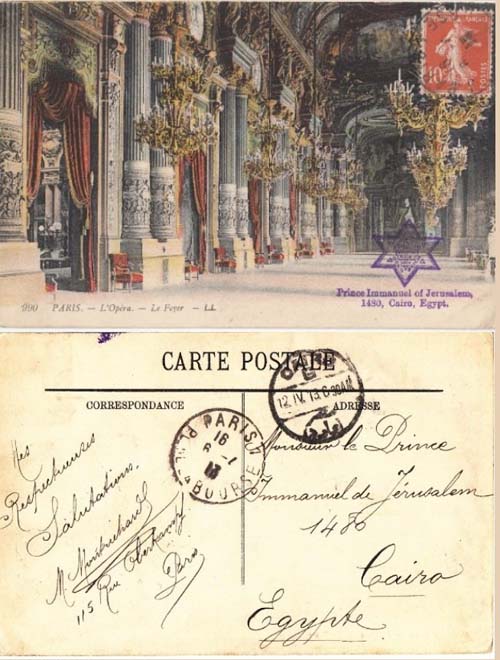 10c
POSTES
Prince Immanuel of Jerusalem,
1480, Cairo, Egypt.
990 PARIS. – L'Opéra. – Le Foyer – LL
CARTE POSTALE
CORRESPONDANCE
ADRESSE
12.IV.13.6 30AM
PARIS
16
BOURSE
Mes
Respectueuses
Salutations.
115 Rue Oberkampf
Paris
Monsieur le Prince
Immanuel de Jérusalem
1480
Cairo
Egypte